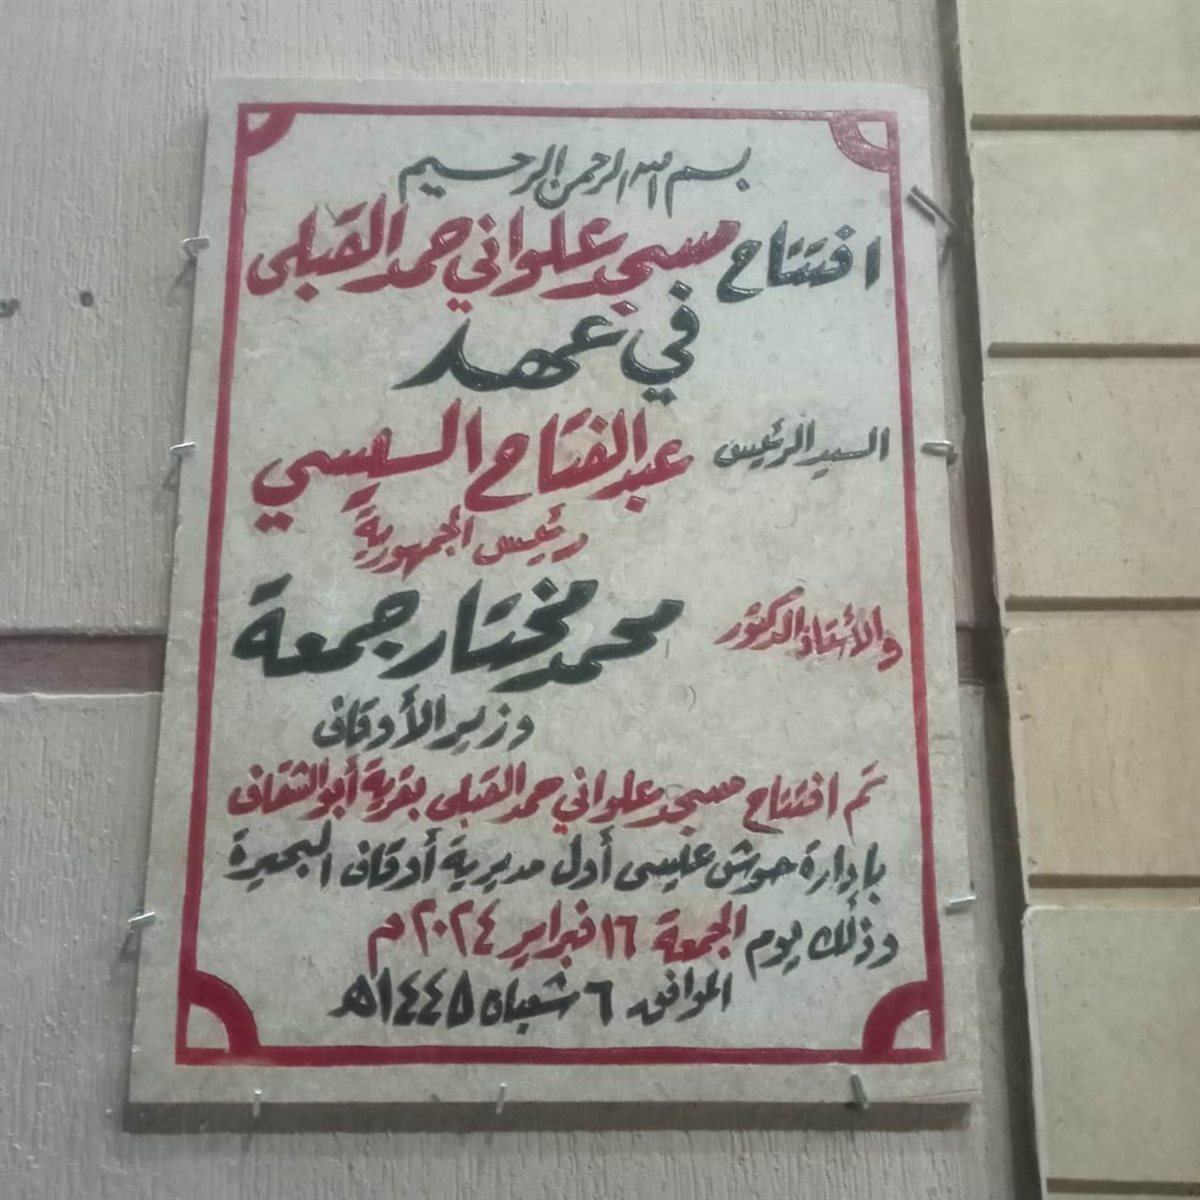 بسم الله الرحمن الرحيم
افتتاح مسجد علواني حمد القبلى
في عهد
السيد الرئيس عبد الفتاح السيسي
رئيس الجمهورية
والأستاذ الدكتور محمد مختار جمعة
وزير الأوقاف
تم افتتاح مسجد علواني حمد القبلى بقرية أبو الشقاف
بإدارة حوش عيسى أول مديرية أوقاف البحيرة
وذلك يوم الجمعة ١٦ فبراير ٢٠٢٤م
الموافق ٦ شعبان ١٤٤٥هـ